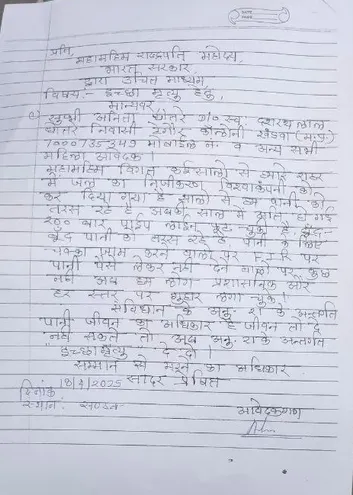 प्रति,
महामहिम राष्ट्रपति महोदय,
भारत सरकार
द्वारा उचित माध्यम
विषय:- इच्छा मृत्यु हेतु,
मान्यवर
सुश्री अनिता धोत्रे दशरथ लाल
धोत्रे निवासी इंदौर कॉलोनी खंडवा (म.प्र.)
7000735349 मोबाईल नं. व अन्य सभी
महिला आवेदक।
महामहिम विगत कई सालो से हमारे शहर
में जल का निजीकरण विश्वा कंपनी को
कर दिया गया है सालो से हम पानी को
तरस रहे है, अबकी साल में
200 बार पाईप लाईन टूट चुकी है, बूंद-
बूंद पानी को तरस रहे है, पानी के लिए
चक्का जाम करने वालो पर FIR पर
पानी पैसे लेकर नहीं देने वालो पर कुछ
नहीं अब हम लोग प्रशासनिक और
हर स्तर पर गुहार लगा चुके।
संविधान के अनु. 21 के अन्तर्गत
पानी जीवन का अधिकार है जीवन तो दे
नहीं सकते तो अब अनु. 21 के अन्तर्गत
"इच्छा मृत्यु" दे दो।
सम्मान से मरने का अधिकार
सादर प्रेषित
दिनांक 18/4/2025
स्थान: खण्डवा
आवेदकगण